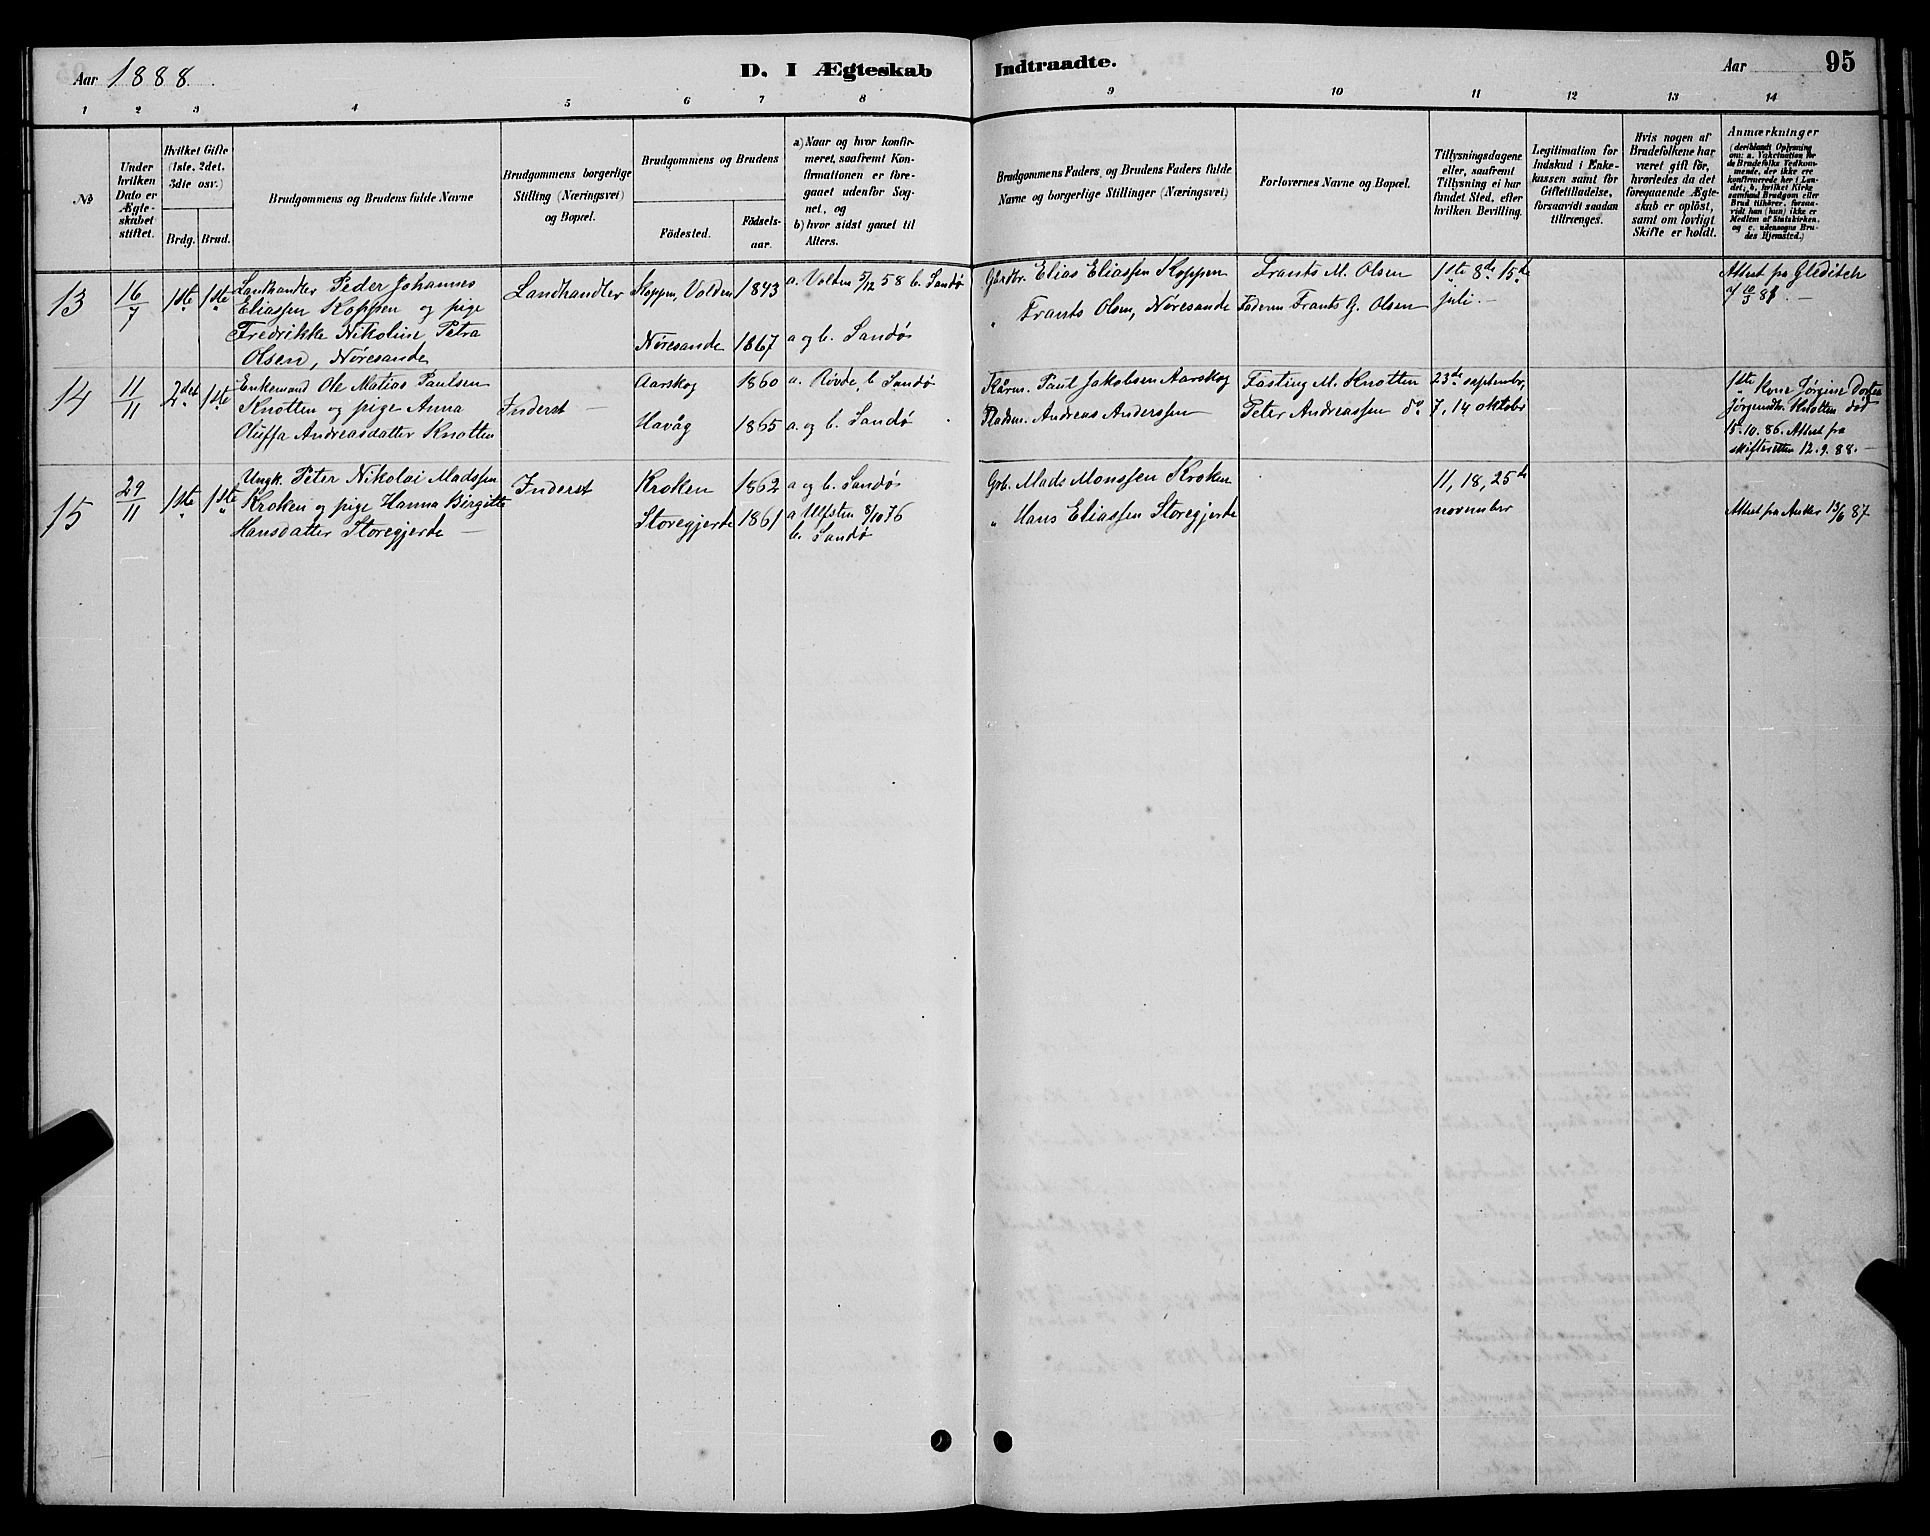 Aar 1888.
D. I Ægteskab Indtraadte.
Aar 95
1 2 3 4 5 6 7 8 9 10 11 12 13 14
№
Under hvilken Dato er Ægteskabet stiftet.
Hvilket Gifte (1ste, 2det, 3die osv.)
Brdg. Brud.
Brudgommens og Brudens fulde Navne
Brudgommens borgerlige Stilling (Næringsvei) og Bopæl.
Brudgommens og Brudens
Fødested.
Fødselsaar.
a) Naar og hvor konfirmeret, saafremt Konfirmationen er foregaaet udenfor Sognet, og
b) hvor sidst gaaet til Alters.
Brudgommens Faders, og Brudens Faders fulde Navne og borgerlige Stillinger (Næringsvei)
Forlovernes Navne og Bopæl.
Tillysningsdagene eller, saafremt Tillysning ei har fundet Sted, efter hvilken Bevilling.
Legitimation for Indskud i Enkekassen samt for Giftetilladelse, forsaavidt saadan tiltrænges.
Hvis nogen af Brudefolkene har været gift før, hvorledes da det foregaaende Ægteskab er opløst, samt om lovligt Skifte er holdt.
Anmærkninger (deriblandt Oplysning om: a. Vakcination for de Brudefolks Vedkommende, der ikke ere konfirmerede her i Landet, b. hvilket Kirkesamfund Brudgom eller Brud tilhører, forsaavidt han (hun) ikke er Medlem af Statskirken, og c. udensogns Brudes Hjemsted.)
13 16/7 1ste 1ste Landhandler Peder Johannes
Eliassen Koppen og pige
Fredrikke Nikoline Petra
Olsen, Nøresande
Landhandler
Koppen, Volden 1843 a. Volden 5/12 58 b. Sandø
Nøresande 1867 a og b. Sandø
Gårdbr. Elias Eliassen Koppen
" Frants Olsen, Nøresande
Frants M. Olsen
Faderen Frants G. Olsen
1ste 8de 15de
juli. —
Attest fra Gleditch
af 10/3 88. —
14 11/11 2det 1ste Enkemand Ole Matias Paulsen
Knotten og pige Anna
Oluffa Andreasdatter Knotten
Inderst —
Aarskog 1860 a. Røvde, b. Sandø
Havåg 1865 a. og b. Sandø
Kårm. Paul Jakobsen Aarskog
Pladsm. Andreas Anderssen
Fasting M. Knotten
Peter Andreassen do
23de septembr,
7, 14 oktobr
1ste Kone Jørgine Dortea
Jørgensdtr. Knotten død
15.10.86. Attest fra
skifteretten 12.9.88. —
15 29/11 1ste 1ste Ungk. Peter Nikolai Madssen
Kroken og pige Hanna Birgitte
Hansdatter Storegjerde —
Inderst
Kroken 1862 a og b. Sandø
Storegjerde 1861 a Ulfsten 8/10 76
b. Sandø
Grb. Mads Monssen Kroken
" Hans Eliassen Storegjerde
11, 18, 25de
november
Attest fra Anker 13/6 87